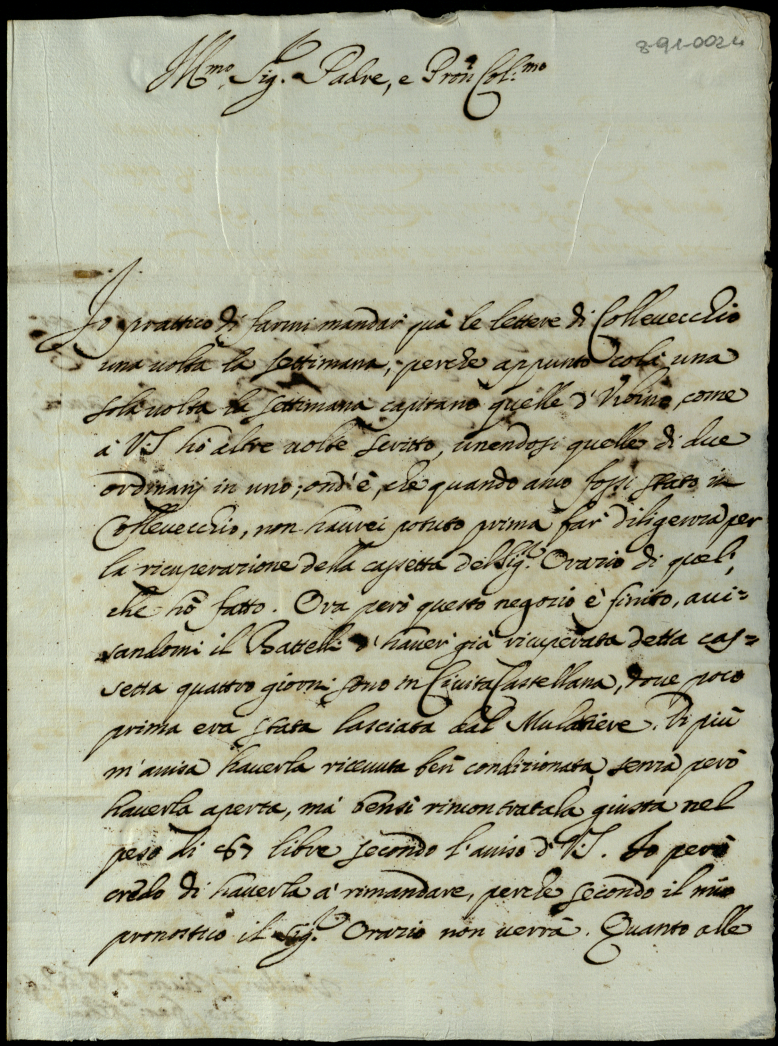 8-91-0024
Ill.mo Sig.r Padre, e Pron Col:mo
Io prattico di farmi mandar quà le lettere di Collevecchio
una volta la settimana, perche appunto colà una
sola volta la settimana capitano quelle d'Urbino, come
à V.S. hò altre volte scritto, unendosi quelle di due
ordinarij in uno; ond'è, che quando anco fossi stato in
Collevecchio, non haurei potuto prima far diligenza per
la ricuperazione della cassetta del Sig.r Orazio di quel,
che hò fatto. Ora però questo negozio è finito, avi=
sandomi il Battelli d'haver già ricuperata detta cas=
setta quattro giorni sono in Civita Castellana, dove poco
prima era stata lasciata dal Mulattiere. Di più
m'avisa haverla ricevuta ben condizionata, senza però
haverla aperta, mà bensì rincontratala giusta nel
peso di 67 libre secondo l'aviso d'V.S. Io però
credo di haverla à rimandare, perche secondo il mio
pronostico il Sig.r Orazio non verrà. Quanto alle